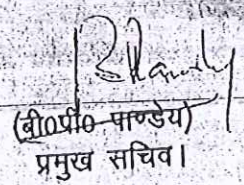 (बी०पी० पाण्डेय)
प्रमुख सचिव।